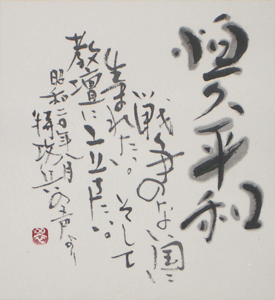 恒久平和
戦争のない国に
生まれたい。そして
教壇に立ちたい。
昭和二十年八月
特攻兵の声より